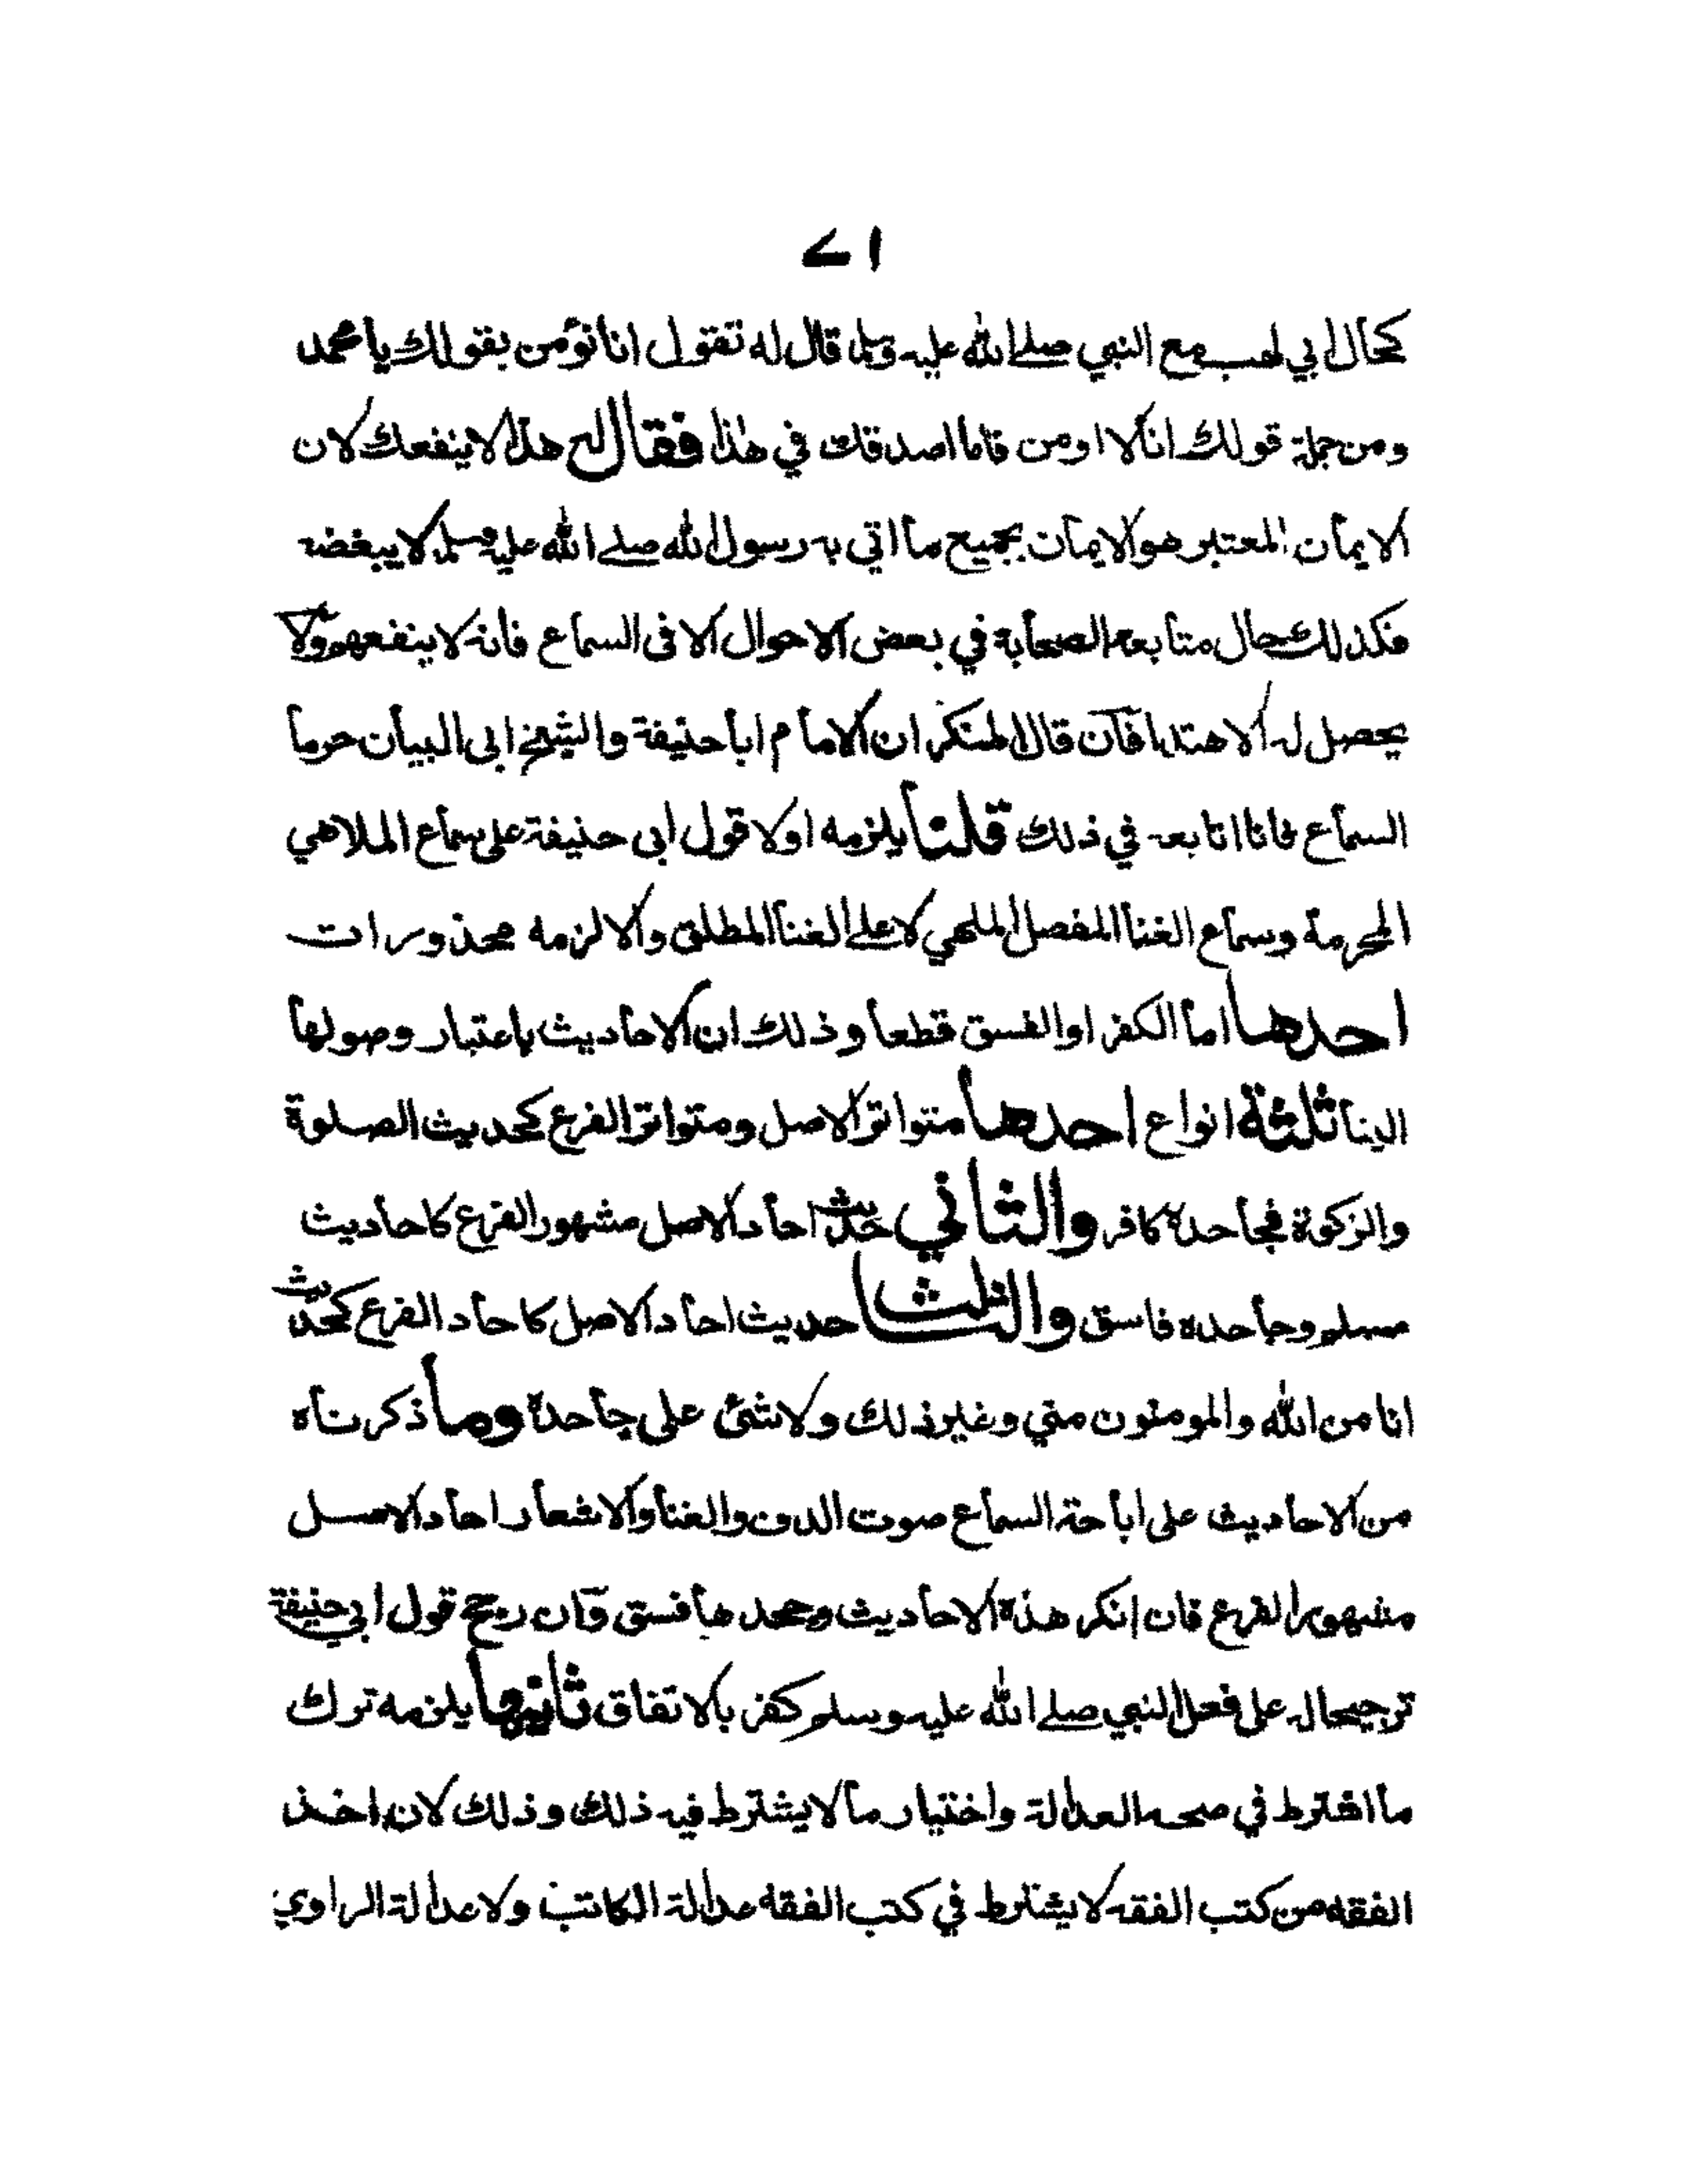 ١٧
كحال ابي لهب مع النبي صلے الله عليه وسلم قال له تقول انا نؤمن بقولك يا محمد
ومن جملة قولك انا لا اومن فانا اصدقك في هذا فقال له هذا لا ينفعك لان
الايمان المعتبر هو الايمان بجميع ما اتي به رسول الله صلے الله عليه وسلم لا ببغضه
فكذلك حال متابعة الصحابة في بعض الاحوال الا فى السماع فانه لا ينفعهم ولا
يحصل له الاهتدا فآن قال المنكر ان الامام ابا حنيفة والشيخ ابى البيان حرما
السماع فانا اتابعه في ذلك قلنا يلزمه اولا قول ابى حنيفة على سماع الملاهي
المحرمة وسماع الغنا المفصل الملهي لا على الغنا المطلق والا لزمه محذورات
احدها اما الكفر او الفسق قطعا وذلك ان الاحاديث باعتبار وصولها
الينا ثلثة انواع احدها متواتر الاصل ومتواتر الفرع كحديث الصلوة
والزكوة فجاحده كافر والثاني حديث احاد الاصل مشهور الفرع كاحاديث
مسلم وجاحده فاسق والثالث حديث احاد الاصل كاحاد الفرع كحديث
انا من الله والمومنون مني وغير ذلك ولا شئ على جاحدة وما ذكرناه
من الاحاديث على اباحة السماع صوت الدف والغنا والاشعار احاد الاصل
مشهور الفرع فان انكر هذه الاحاديث وجحدها فسق وآن رجح قول ابي حنيفة
ترجيحا له على فعل النبي صلے الله عليه وسلم كفر بالاتفاق ثانيها يلزمه ترك
ما اشترط في صحه العدالة واختيار ما لا يشترط فيه ذلك وذلك لان اخذ
الفقه من كتب الفقه لا يشترط في كتب الفقه عدالة الكاتب ولا عدالة الراوي